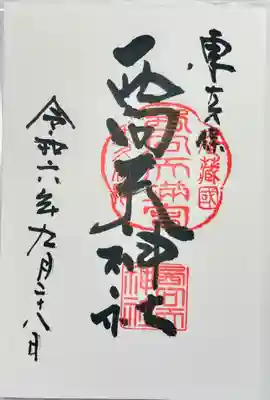 東大久保
藏國
西向天神社
令和六年九月二十八日